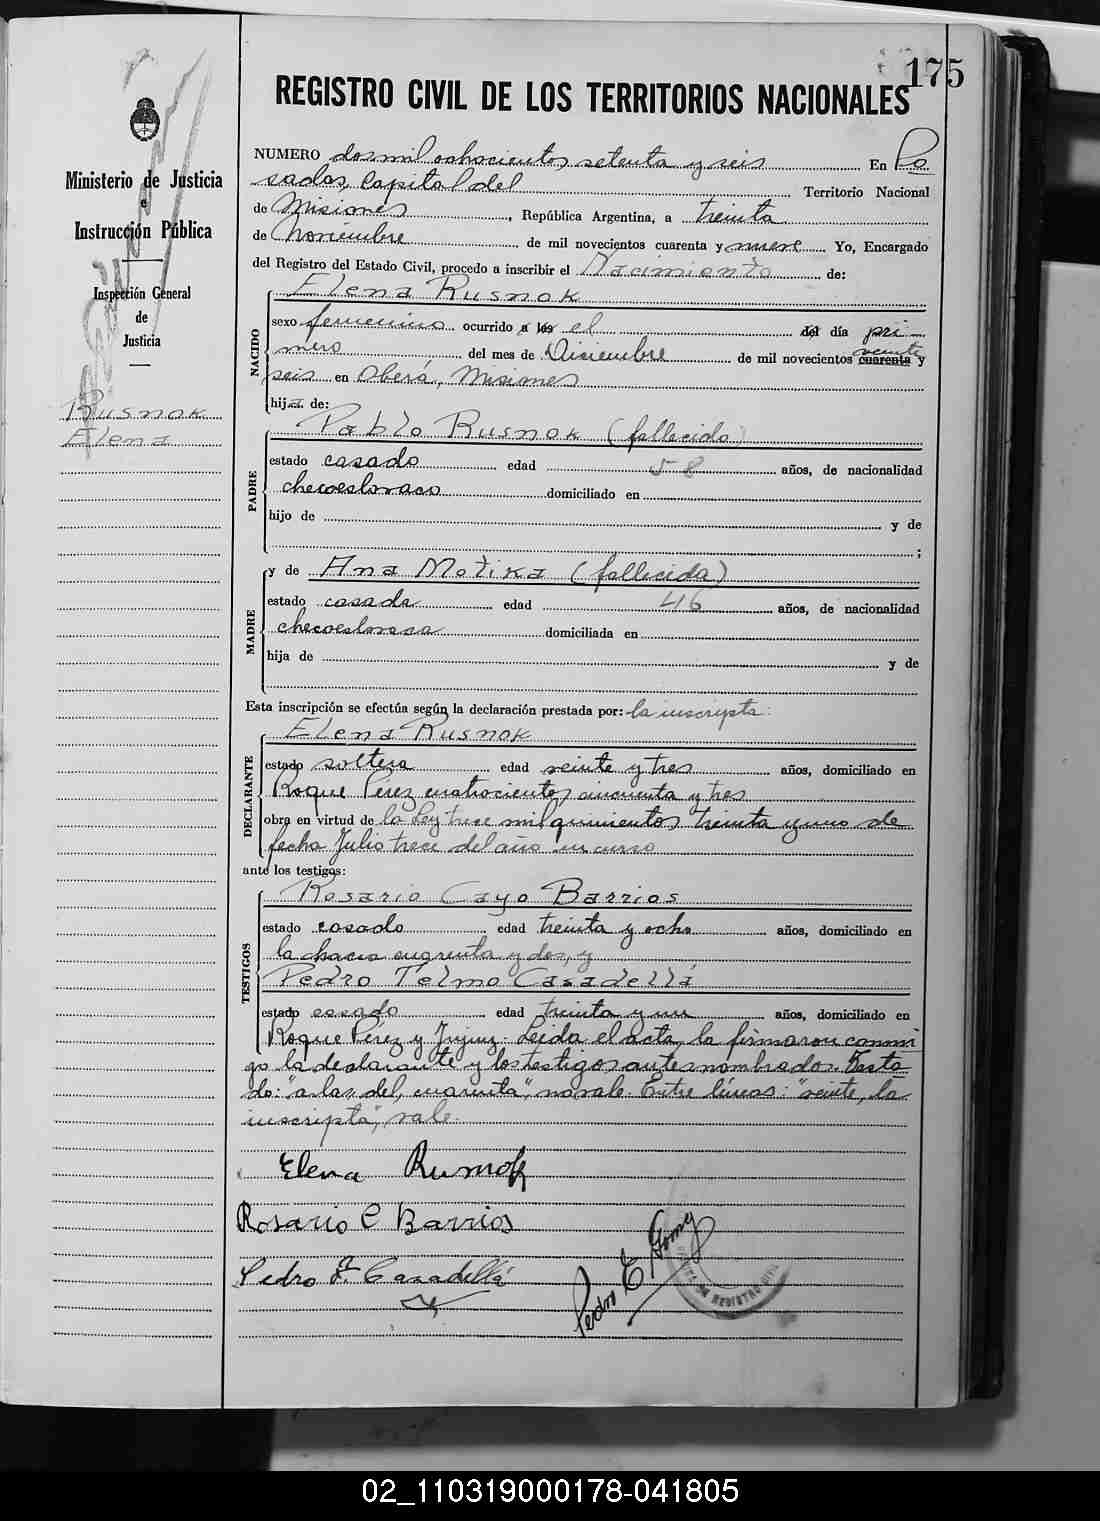 175
REGISTRO CIVIL DE LOS TERRITORIOS NACIONALES
Ministerio de Justicia
e
Instrucción Pública
Inspección General
de
Justicia
Rusnok
Elena
NUMERO dos mil ochocientos setenta y seis En Po
sadas, Capital del Territorio Nacional
de Misiones, República Argentina, a treinta
de Noviembre de mil novecientos cuarenta y nueve Yo, Encargado
del Registro del Estado Civil, procedo a inscribir el Nacimiento de:
NACIDO
Elena Rusnok
sexo femenino ocurrido a las el del día pri
mero del mes de Diciembre de mil novecientos cuarenta veinte y
seis en Oberá, Misiones
hija de:
PADRE
Pablo Rusnok (fallecido)
estado casado edad 58 años, de nacionalidad
checoeslovaco domiciliado en
hijo de y de
;
MADRE
y de Ana Motika (fallecida)
estado casada edad 46 años, de nacionalidad
checoeslovaca domiciliada en
hija de y de
Esta inscripción se efectúa según la declaración prestada por: la inscripta:
DECLARANTE
Elena Rusnok
estado soltera edad veinte y tres años, domiciliado en
Roque Pérez cuatrocientos cincuenta y tres
obra en virtud de la Ley trece mil quinientos treinta y uno de
fecha Julio trece del año en curso
ante los testigos:
TESTIGOS
Rosario Cayo Barrios
estado casado edad treinta y ocho años, domiciliado en
la chacra cuarenta y dos, y
Pedro Telmo Casadellá
estado casado edad treinta y un años, domiciliado en
Roque Pérez y Jujuy. Leida el acta, la firmaron conmi
go la declarante y los testigos antes nombrados. Testa
do: "a las, del, cuarenta", no vale. Entre líneas: "veinte, la
inscripta", vale.
Elena Rusnok
Rosario C Barrios
Pedro T. Casadellá
Pedro E Gomez
REGISTRO CIVIL
02_110319000178-041805